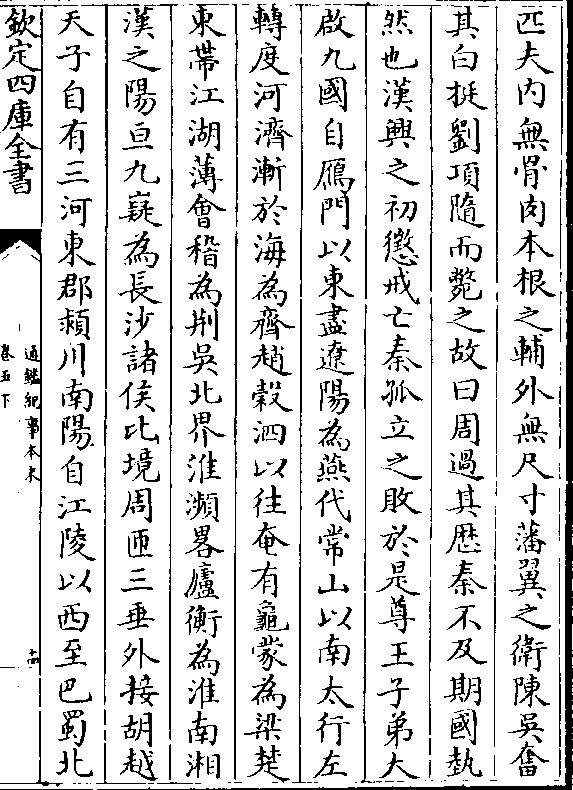 匹夫内無骨肉本根之輔外無尺寸藩翼之衛陳吳奮
其白挺劉項隨而斃之故曰周過其歴秦不及期國埶
然也漢興之初懲戒亡秦孤立之敗於是尊王子弟大
啟九國自鴈門以東盡遼陽為燕代常山以南太行左
轉度河濟漸於海為齊趙穀泗以往奄有龜蒙為梁楚
東帶江湖薄㑹稽為荆吳北界淮瀕畧廬衡為淮南湘
漢之陽亘九嶷為長沙諸侯比境周匝三垂外接胡越
天子自有三河東郡潁川南陽自江陵以西至巴蜀北
欽定四庫全書
通鑑紀事本末
卷五下
十四